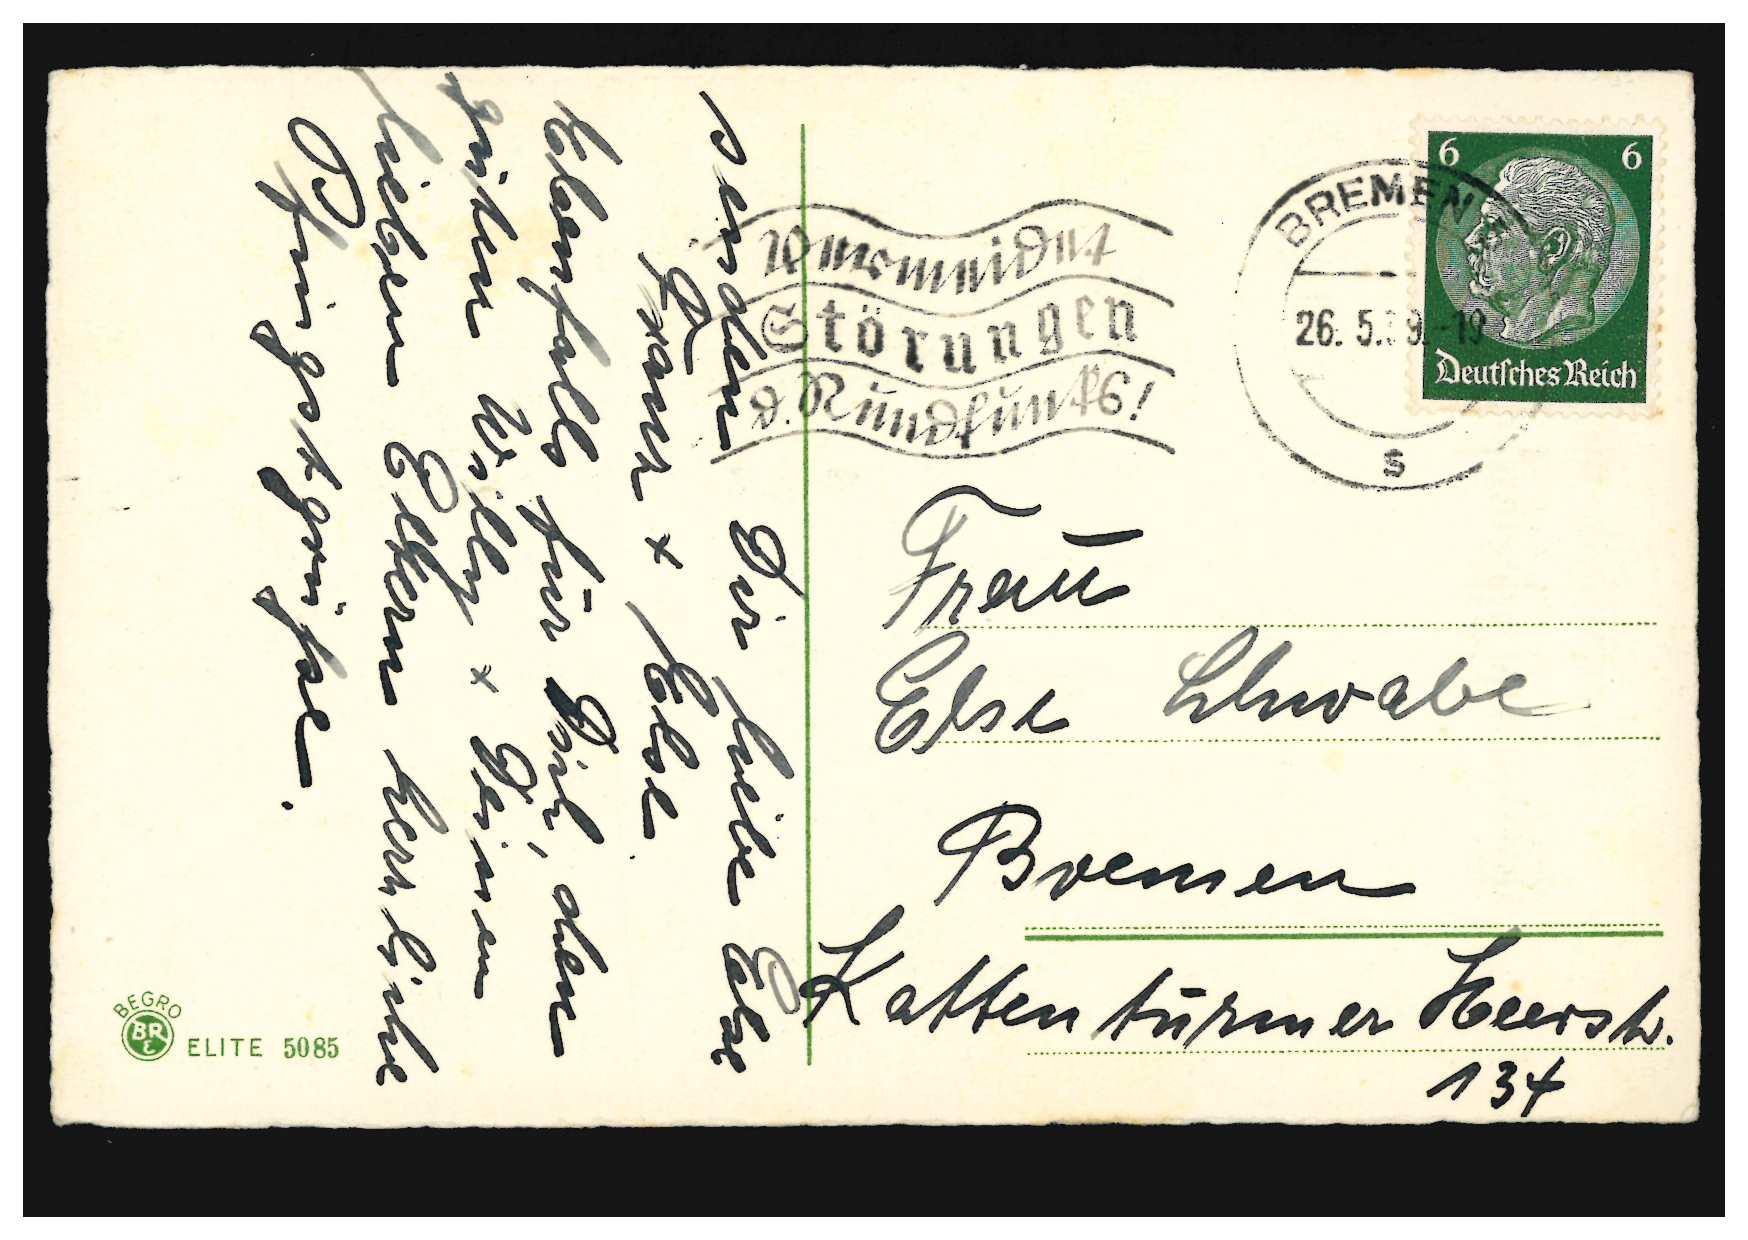 senden Dir liebe Else
Franz + Else
Ebenfalls für Dich, den
guten Willy + Deinen
lieben Eltern herzliche
Pfingstgrüße.
BEGRO
BR
E
ELITE 5085
Vermeidet
Störungen
d. Rundfunks!
BREMEN
26. 5.39.-19
S
6 6
Deutsches Reich
Frau
Else Schwabe
Bremen
Kattenturmer Heerstr.
134